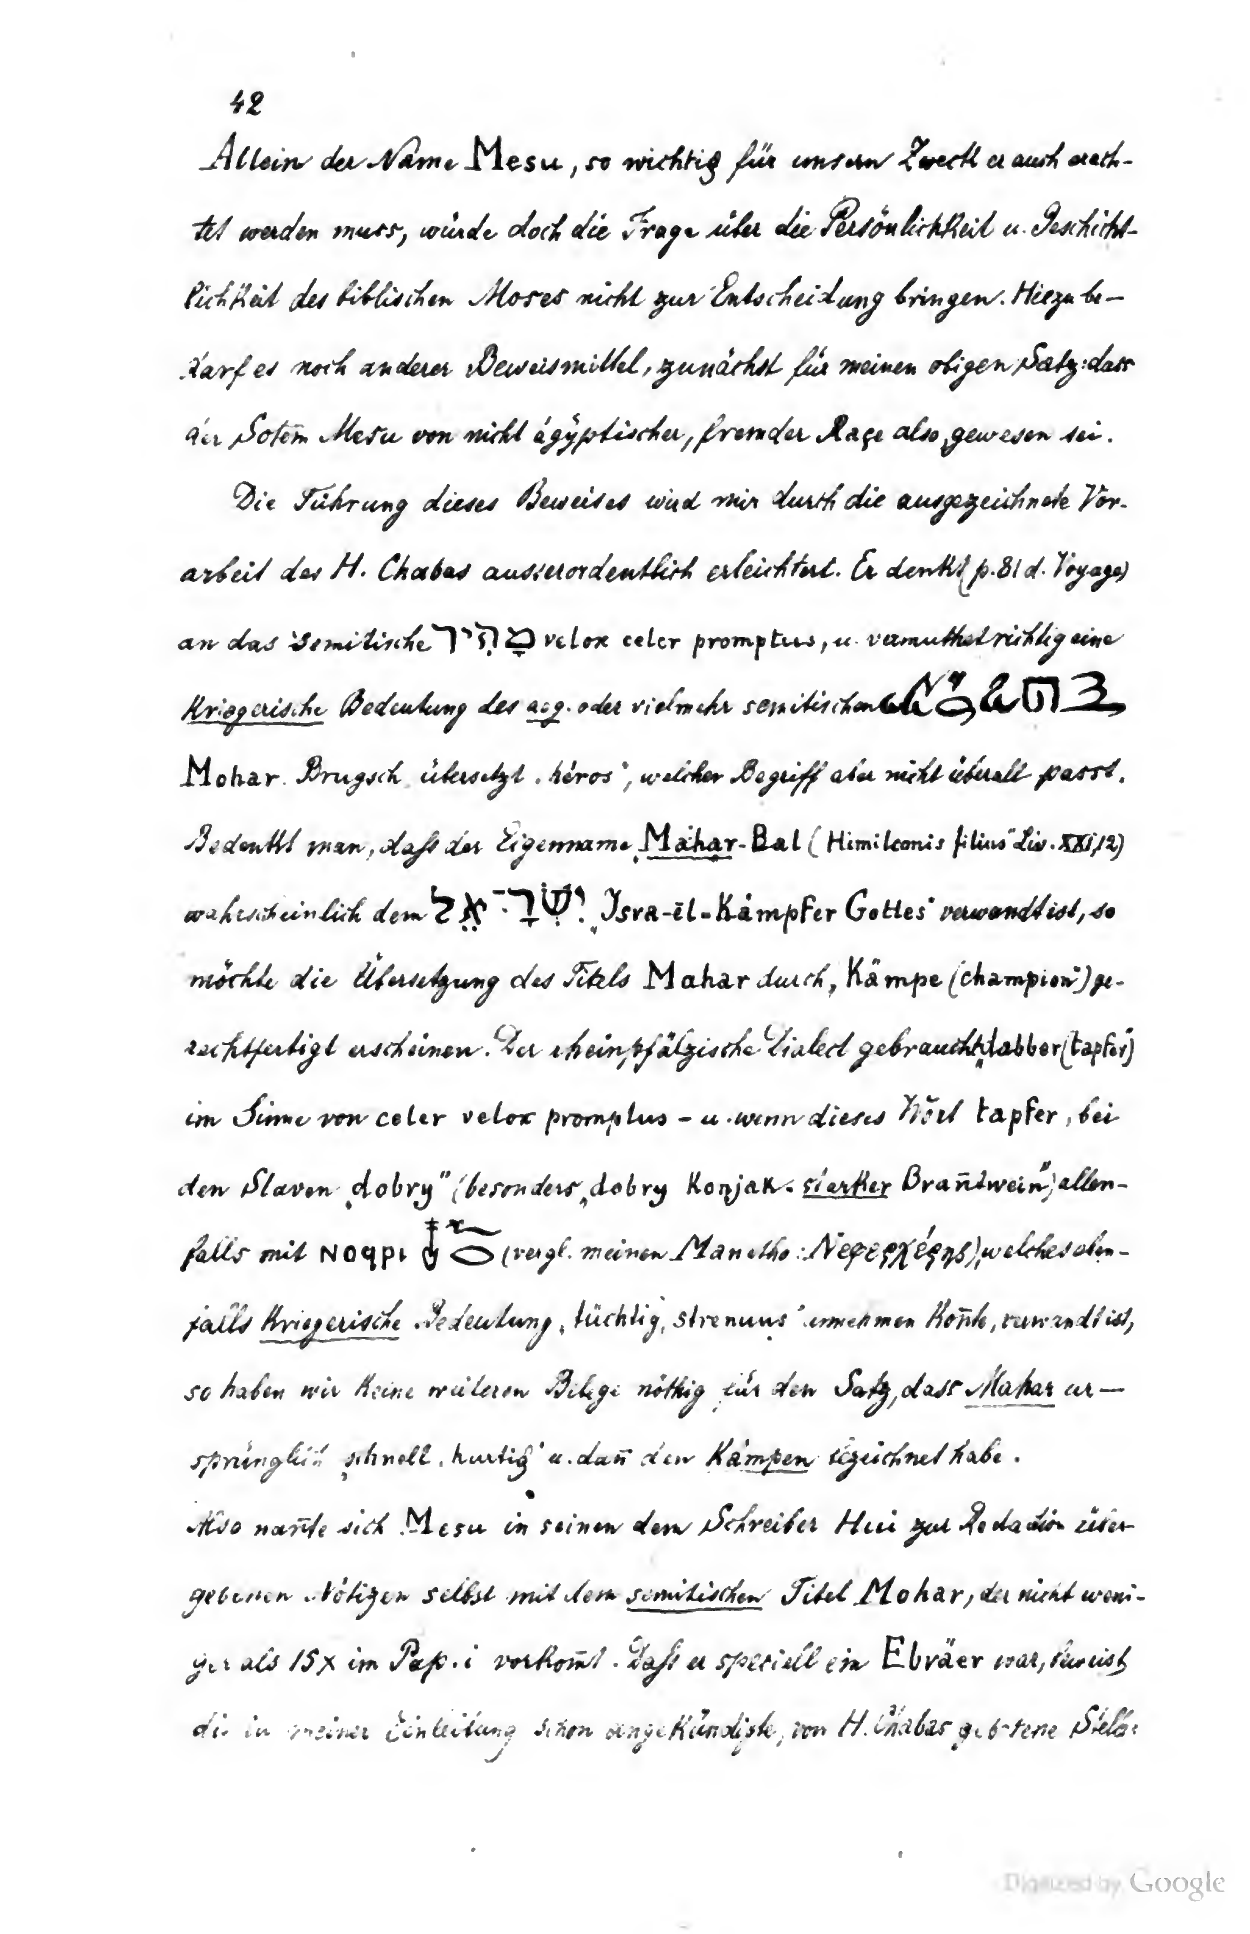 42
Allein der Name Mesu, so wichtig für unsern Zweck er auch erach-
tet werden muss, würde doch die Frage über die Persönlichkeit u. Geschicht-
lichkeit des biblischen Moses nicht zur Entscheidung bringen. Hiezu be-
darf es noch anderer Beweismittel, zunächst für meinen obigen Satz: dass
der Sotem Mesu von nicht ägyptischer, fremder Raçe also, gewesen sei.
Die Führung dieses Beweises wird mir durch die ausgezeichnete Vor-
arbeit des H. Chabas ausserordentlich erleichtert. Er denkt (p. 81 d. Voyage)
an das semitische מָהִיר velox celer promptus, u. vermuthet richtig eine
kriegerische Bedeutung des aeg. oder vielmehr semitischen
Mohar. Brugsch übersetzt „héros“, welcher Begriff aber nicht überall passt.
Bedenkt man, daſs der Eigenname Mahar-Bal („Himilconis filius“ Liv. XXI,12)
wahrscheinlich dem יִשְׂרָ־אֵל „Isra-ēl-Kämpfer Gottes“ verwandt ist, so
möchte die Übersetzung des Titels Mahar durch „Kämpe (champion“) ge-
rechtfertigt erscheinen. Der rheinpfälzische Dialect gebraucht „tabber (tapfer“)
im Sinne von celer velox promptus – u. wenn dieses Wort tapfer, bei
den Slaven „dobry“ (besonders „dobry Konjak - starker Bran̄twein“) allen-
falls mit ⲛⲟϥⲣⲓ (vergl. meinen Manetho: Νεφερχέρης), welches eben-
falls kriegerische Bedeutung „tüchtig, strenuus“ annehmen kon̄te, verwandt ist,
so haben wir keine weiteren Belege nöthig für den Satz, dass Mahar ur-
sprünglich „schnell, hurtig“ u. dan̄ den Kämpen bezeichnet habe.
Also nan̄te sich Mesu in seinen dem Schreiber Hui zur Redaction über-
gebenen Notizen selbst mit dem semitischen Titel Mohar, der nicht weni-
ger als 15x im Pap. i vorkom̄t. Daſs er speciell ein Ebräer war, beweist
die in meiner Einleitung schon angekündigte, von H. Chabas gebotene Stelle:
Digitized by Google